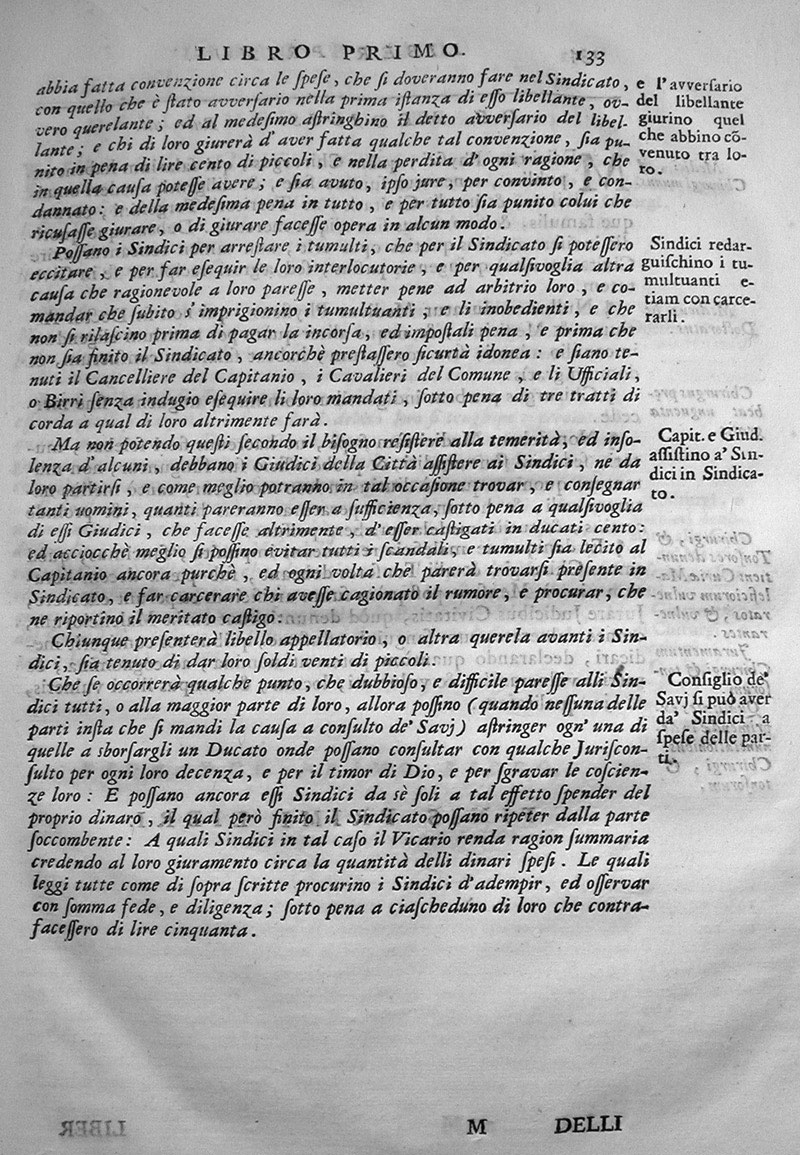 LIBRO PRIMO. 133
abbia fatta convenzione circa le ſpeſe, che ſi doveranno fare nel Sindicato,
con quello che è ſtato avverſario nella prima iſtanza di eſſo libellante, ov-
vero querelante; ed al medeſimo aſtringhino il detto avverſario del libel-
lante; e chi di loro giurerà d'aver fatta qualche tal convenzione, ſia pu-
nito in pena di lire cento di piccoli, e nella perdita d'ogni ragione, che
in quella cauſa poteſſe avere; e ſia avuto, ipſo jure, per convinto, e con-
dannato: e della medeſima pena in tutto, e per tutto ſia punito colui che
ricuſaſſe giurare, o di giurare faceſſe opera in alcun modo.
e l'avverſario
del libellante
giurino quel
che abbino cō-
venuto tra lo-
ro.
Poſſano i Sindici per arreſtare i tumulti, che per il Sindicato ſi poteſſero
eccitare, e per far eſequir le loro interlocutorie, e per qualſivoglia altra
cauſa che ragionevole a loro pareſſe, metter pene ad arbitrio loro, e co-
mandar che ſubito s'imprigionino i tumultuanti, e li inobedienti, e che
non ſi rilaſcino prima di pagar la incorſa, ed impoſtali pena, e prima che
non ſia finito il Sindicato, ancorchè preſtaſſero ſicurtà idonea: e ſiano te-
nuti il Cancelliere del Capitanio, i Cavalieri del Comune, e li Ufficiali,
o Birri ſenza indugio eſequire li loro mandati, ſotto pena di tre tratti di
corda a qual di loro altrimente farà.
Sindici redar-
guiſchino i tu-
multuanti e-
tiam con carce-
rarli.
Ma non potendo queſti ſecondo il biſogno reſiſtere alla temerità, ed inſo-
lenza d'alcuni, debbano i Giudici della Città aſſiſtere ai Sindici, ne da
loro partirſi, e come meglio potranno in tal occaſione trovar, e conſegnar
tanti uomini, quanti pareranno eſſer a ſufficienza, ſotto pena a qualſivoglia
di eſſi Giudici, che faceſſe altrimente, d'eſſer caſtigati in ducati cento:
ed acciocchè meglio ſi poſſino evitar tutti i ſcandali, e tumulti ſia lecito al
Capitanio ancora purchè, ed ogni volta che parerà trovarſi preſente in
Sindicato, e far carcerare chi aveſſe cagionato il rumore, e procurar, che
ne riportino il meritato caſtigo:
Capit. e Giud.
aſſiſtino a' Sin-
dici in Sindica-
to.
Chiunque preſenterà libello appellatorio, o altra querela avanti i Sin-
dici, ſia tenuto di dar loro ſoldi venti di piccoli.
Che ſe occorrerà qualche punto, che dubbioſo, e difficile pareſſe alli Sin-
dici tutti, o alla maggior parte di loro, allora poſſino (quando neſſuna delle
parti inſta che ſi mandi la cauſa a conſulto de' Savj) aſtringer ogn' una di
quelle a sborſargli un Ducato onde poſſano conſultar con qualche Juriſcon-
ſulto per ogni loro decenza, e per il timor di Dio, e per ſgravar le coſcien-
ze loro: E poſſano ancora eſſi Sindici da sè ſoli a tal effetto ſpender del
proprio dinaro, il qual però finito il Sindicato poſſano ripeter dalla parte
ſoccombente: A quali Sindici in tal caſo il Vicario renda ragion ſummaria
credendo al loro giuramento circa la quantità delli dinari ſpeſi. Le quali
leggi tutte come di ſopra ſcritte procurino i Sindici d'adempir, ed oſſervar
con ſomma fede, e diligenza; ſotto pena a ciaſcheduno di loro che contra-
faceſſero di lire cinquanta.
Conſiglio de'
Savj ſi può aver
da' Sindici a
ſpeſe delle par-
ti.
M DELLI